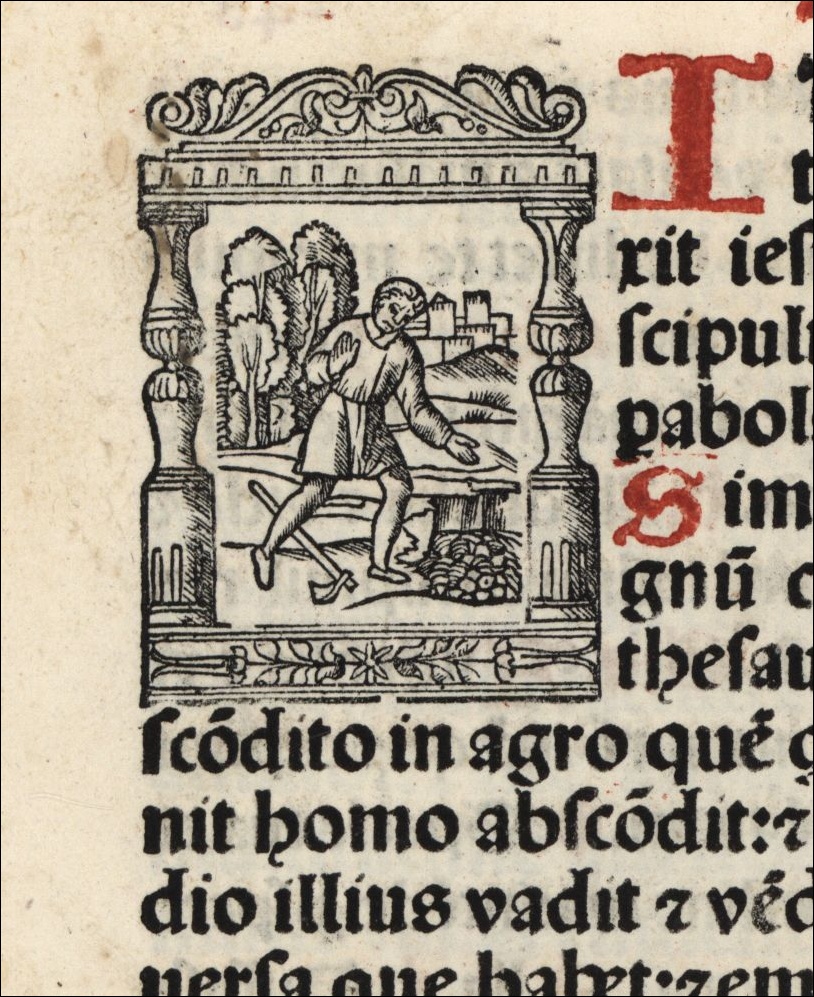 I
t
rit ieſ
ſcipuli
pabol
Sim
gnū c
theſau
ſcōdito in agro quē
nit homo abſcōdit:⁊
dio illius vadit ⁊ vēd
uerſa que habꝫt·⁊em